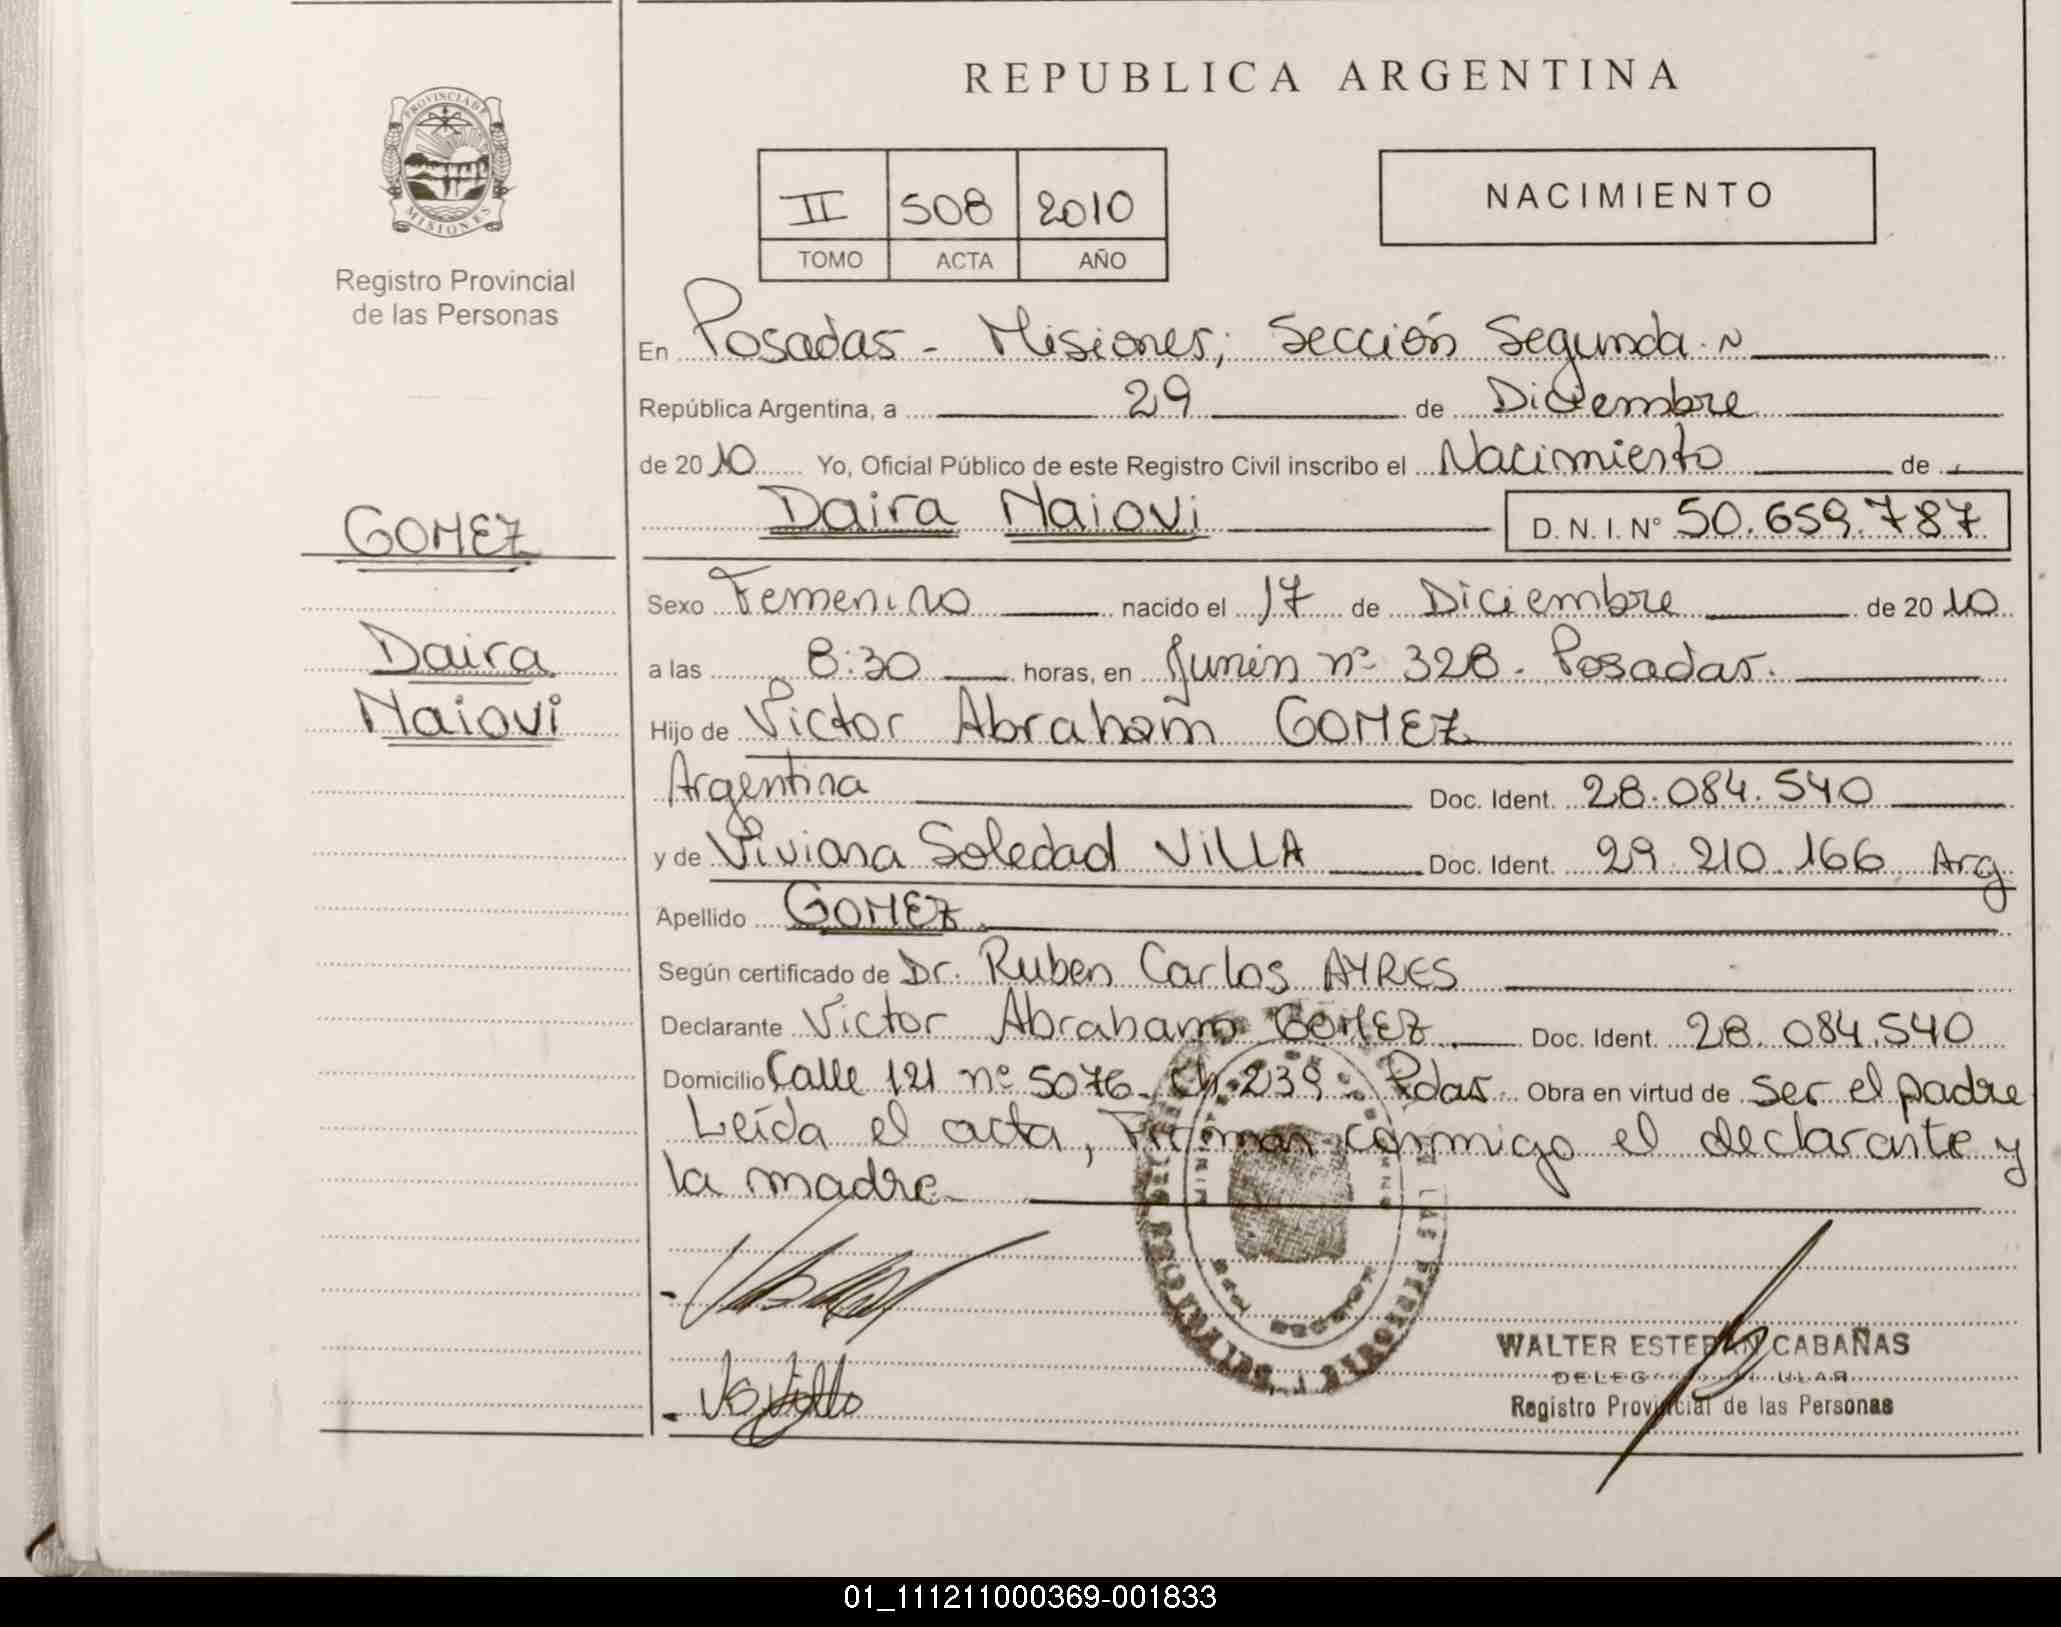 REPUBLICA ARGENTINA
PROVINCIA DE
MISIONES
Registro Provincial
de las Personas
II 508 2010
TOMO ACTA AÑO
NACIMIENTO
En Posadas - Misiones; Sección Segunda
República Argentina, a 29 de Diciembre
de 2010 Yo, Oficial Público de este Registro Civil inscribo el Nacimiento de
Daira Naiovi D. N. I. Nº 50.659.787
GOMEZ
Daira
Naiovi
Sexo Femenino nacido el 17 de Diciembre de 2010
a las 8:30 horas, en Junín nº 328. Posadas.
Hijo de Victor Abraham GOMEZ
Argentina Doc. Ident. 28.084.540
y de Viviana Soledad VILLA Doc. Ident. 29.210.166 Arg
Apellido GOMEZ
Según certificado de Dr. Ruben Carlos AYRES
Declarante Victor Abraham GOMEZ Doc. Ident. 28.084.540
Domicilio Calle 121 nº 5076. Ch. 239. Pdas. Obra en virtud de Ser el padre
Leída el acta, Firman conmigo el declarante y
la madre
WALTER ESTEBAN CABAÑAS
Registro Provincial de las Personas
01_111211000369-001833